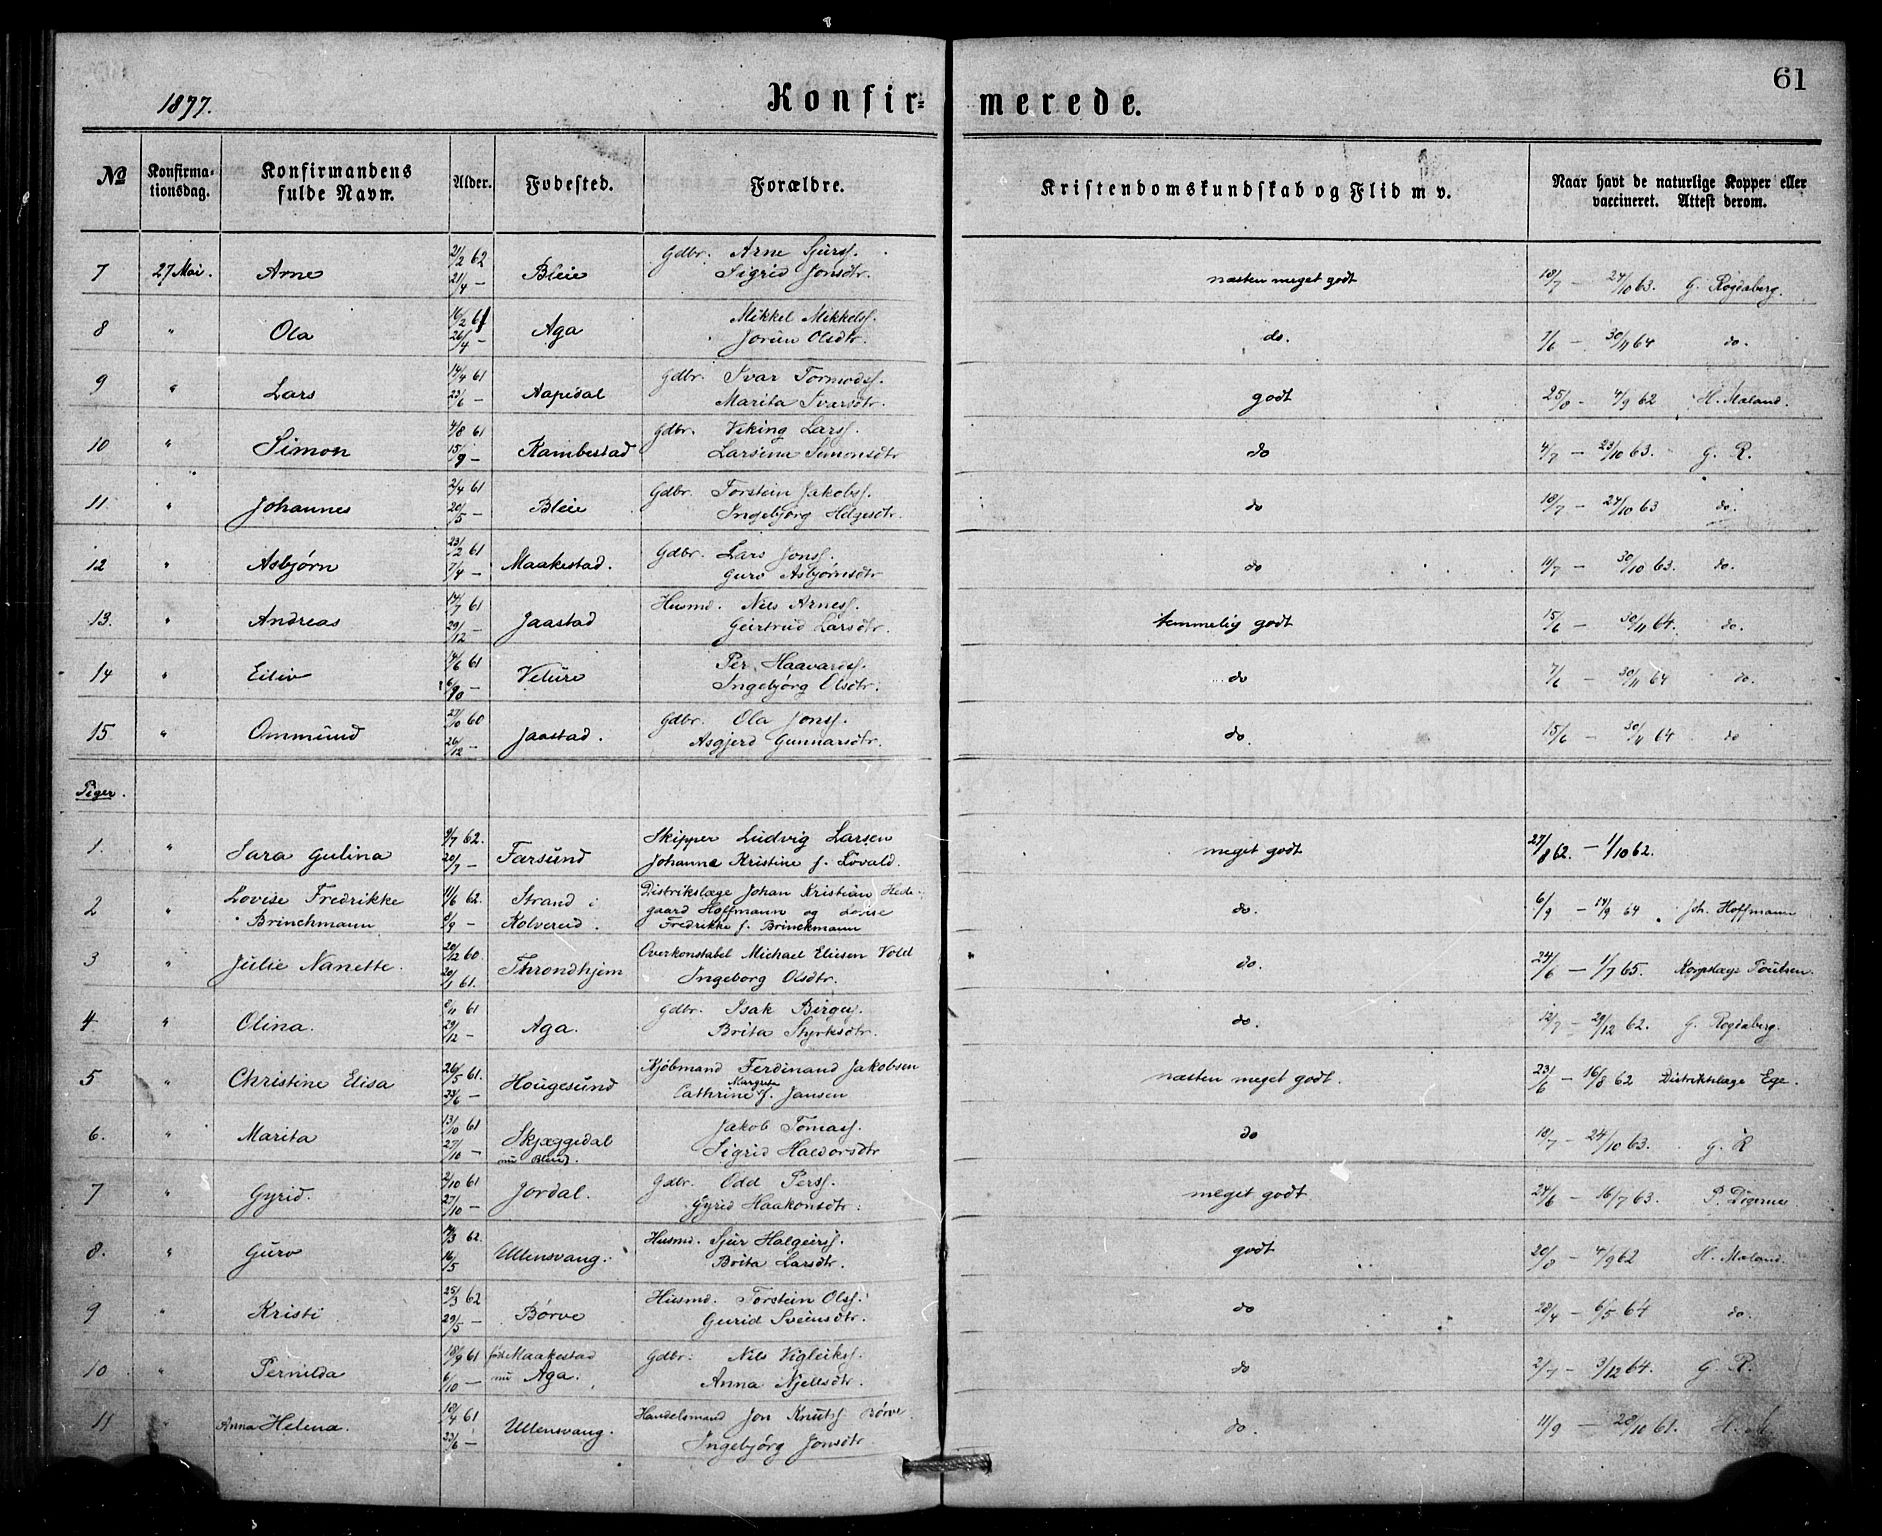 61
1877. Konfir= merede.
No Konfirmationsdag. Konfirmandens fulde Navn. Alder. Fødested. Forældre. Kristendomskundskab og Flid m v. Naar havt de naturlige Kopper eller vaccineret. Attest derom.
7 27 Mai. Arne 21/2 62 21/4 — Bleie Gdbr. Arne Sjurss. Sigrid Jonsdtr. næsten meget godt 18/7 — 24/10 63. G. Rogdaberg.
8 " Ola 16/2 61 26/4 — Aga Mikkel Mikkelss. Jorun Olsdtr. do. 7/6 — 30/11 64 do.
9 " Lars 14/4 61 23/6 — Aapidal Gdbr. Ivar Tormodss. Marita Ivarsdtr. godt 25/8 — 4/9 62 H. Maland.
10 " Simon 4/8 61 15/9 — Rambestad Gdbr. Viking Larss. Larsina Simonsdtr do 4/7 — 23/10 63. G. R.
11. " Johannes 2/4 61 20/5 — Bleie Gdbr. Torstein Jakobss. Ingebjørg Helgesdtr. do 18/7 — 24/10 63 do.
12 " Asbjørn 23/2 61 7/4 — Maakestad. Gdbr. Lars Jonss. Guro Asbjørnsdtr do 11/7 — 30/10 63. do.
13. " Andreas 14/7 61 29/12 — Jaastad Husmd. Nils Arness. Geirtrud Larsdtr. temmelig godt 15/6 — 30/11 64. do.
14 " Eiliv 14/6 61 6/10 — Velure Per Haavardss. Ingebjørg Olsdtr. do 7/6 — 30/11 64 do.
15. " Ommund 27/10 60 26/12 — Jaastad. Gdbr. Ola Jonss. Asgjerd Gunnarsdtr. do. 15/6 — 30/11 64 do
Piger.
1. " Sara Gulina 9/7 62. 20/7 — Farsund Skipper Ludvig Larsen Johanne Kristine f. Løvald. meget godt 27/8 62. — 1/10 62.
2 " Lovise Fredrikke Brinchmann 11/6 62. 8/9 — Strand i Kolvereid. Distriktslæge Johan Kristian Hedegaard Hoffmann og Lovise Fredrikke f. Brinckmann do. 6/9 — 14/9 64 Joh. Hoffmann
3 " Julie Nanette. 20/12 60. 20/1 61. Throndhjem Overkonstabel Michael Eliesen Vold Ingeborg Olsdtr. do. 24/6 — 1/7 65. Korpslæge Poulsen.
4. " Olina. 8/11 61 29/12 — Aga. Gdbr. Isak Birgers. Brita Styrksdtr. do. 12/7 — 29/12 62. G. Rogdaberg.
5 " Christine Elisa 26/5 61. 23/6 — Hougesund Kjøbmand Ferdinand Jakobsen Cathrine Margrete f. Jansen næsten meget godt. 23/6 — 16/8 62 Distriktslæge Ege.
6. " Marita 13/10 61 27/10 — Skjæggedal nu Bleie. Jakob Tomass. Sigrid Haldorsdtr do 18/7 — 24/10 63. G. R
7 " Gyrid. 2/10 61 27/10 — Jordal. Gdbr. Odd Perss. Gyrid Haakonsdtr. meget godt 24/6 — 16/7 63. P. Digernes
8. " Guro 14/3 62. 16/5 Ullensvang. Husmd. Sjur Halgeirss. Brita Larsdtr. godt 20/8 — 4/9 62 H. Maland.
9 " Kristi 25/3 62 29/5 — Børve Husmd. Torstein Olss. Gurid Sveinsdtr. do 28/4 — 6/5 64 do.
10. " Pernilda 18/9 61 6/10 — født Maakestad nu Aga. Gdbr. Nils Vigleikss. Anna Njellsdtr. do 2/7 — 3/12 64. G. R.
11 " Anna Helena. 10/4 61 23/6 — Ullensvang. Handelsmand Jon Knutss Børve. Ingebjørg Jonsdtr. do. 11/9 — 28/10 61. H. M.